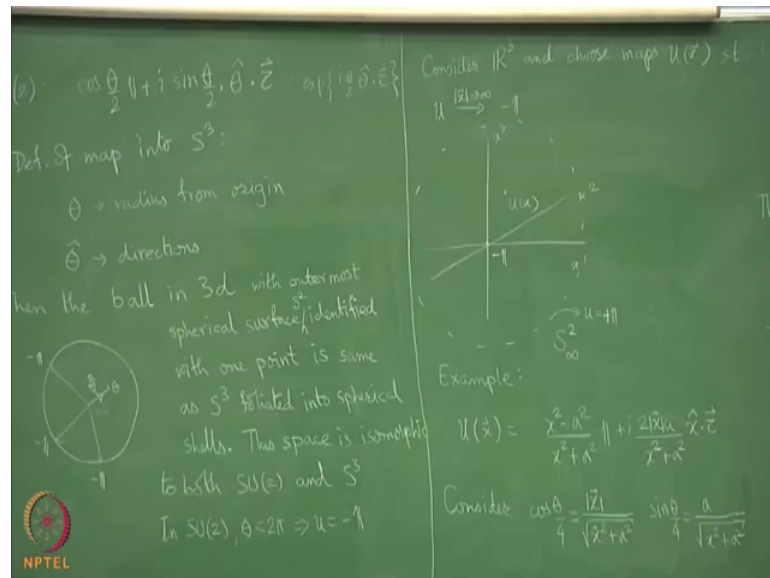 (2): cos θ/2 𝟙 + i sin θ/2 θ̂·τ⃗ = exp{iθ/2 θ̂·τ⃗}
Def. of map into S³:
θ → radius from origin
θ̂ → directions
hen the ball in 3d with outermost
spherical surface, S² identified
with one point is same
as S³ foliated into spherical
shells. This space is isomorphic
to both SU(2) and S³
In SU(2), θ=2π ⇒ U = -𝟙
-𝟙
θ̂ θ
-𝟙
-𝟙
NPTEL
Consider ℝ³ and choose maps U(x⃗) st.
U |x⃗|→∞ ⟹ -𝟙
x³
U(x)
x²
-𝟙
x¹
S²∞ → U=+𝟙
Example:
U(x⃗) = (x²-a²)/(x²+a²) 𝟙 + i 2|x⃗|a/(x²+a²) x̂·τ⃗
Consider cos θ/4 = |x⃗|/√(x⃗²+a²) sin θ/4 = a/√(x²+a²)